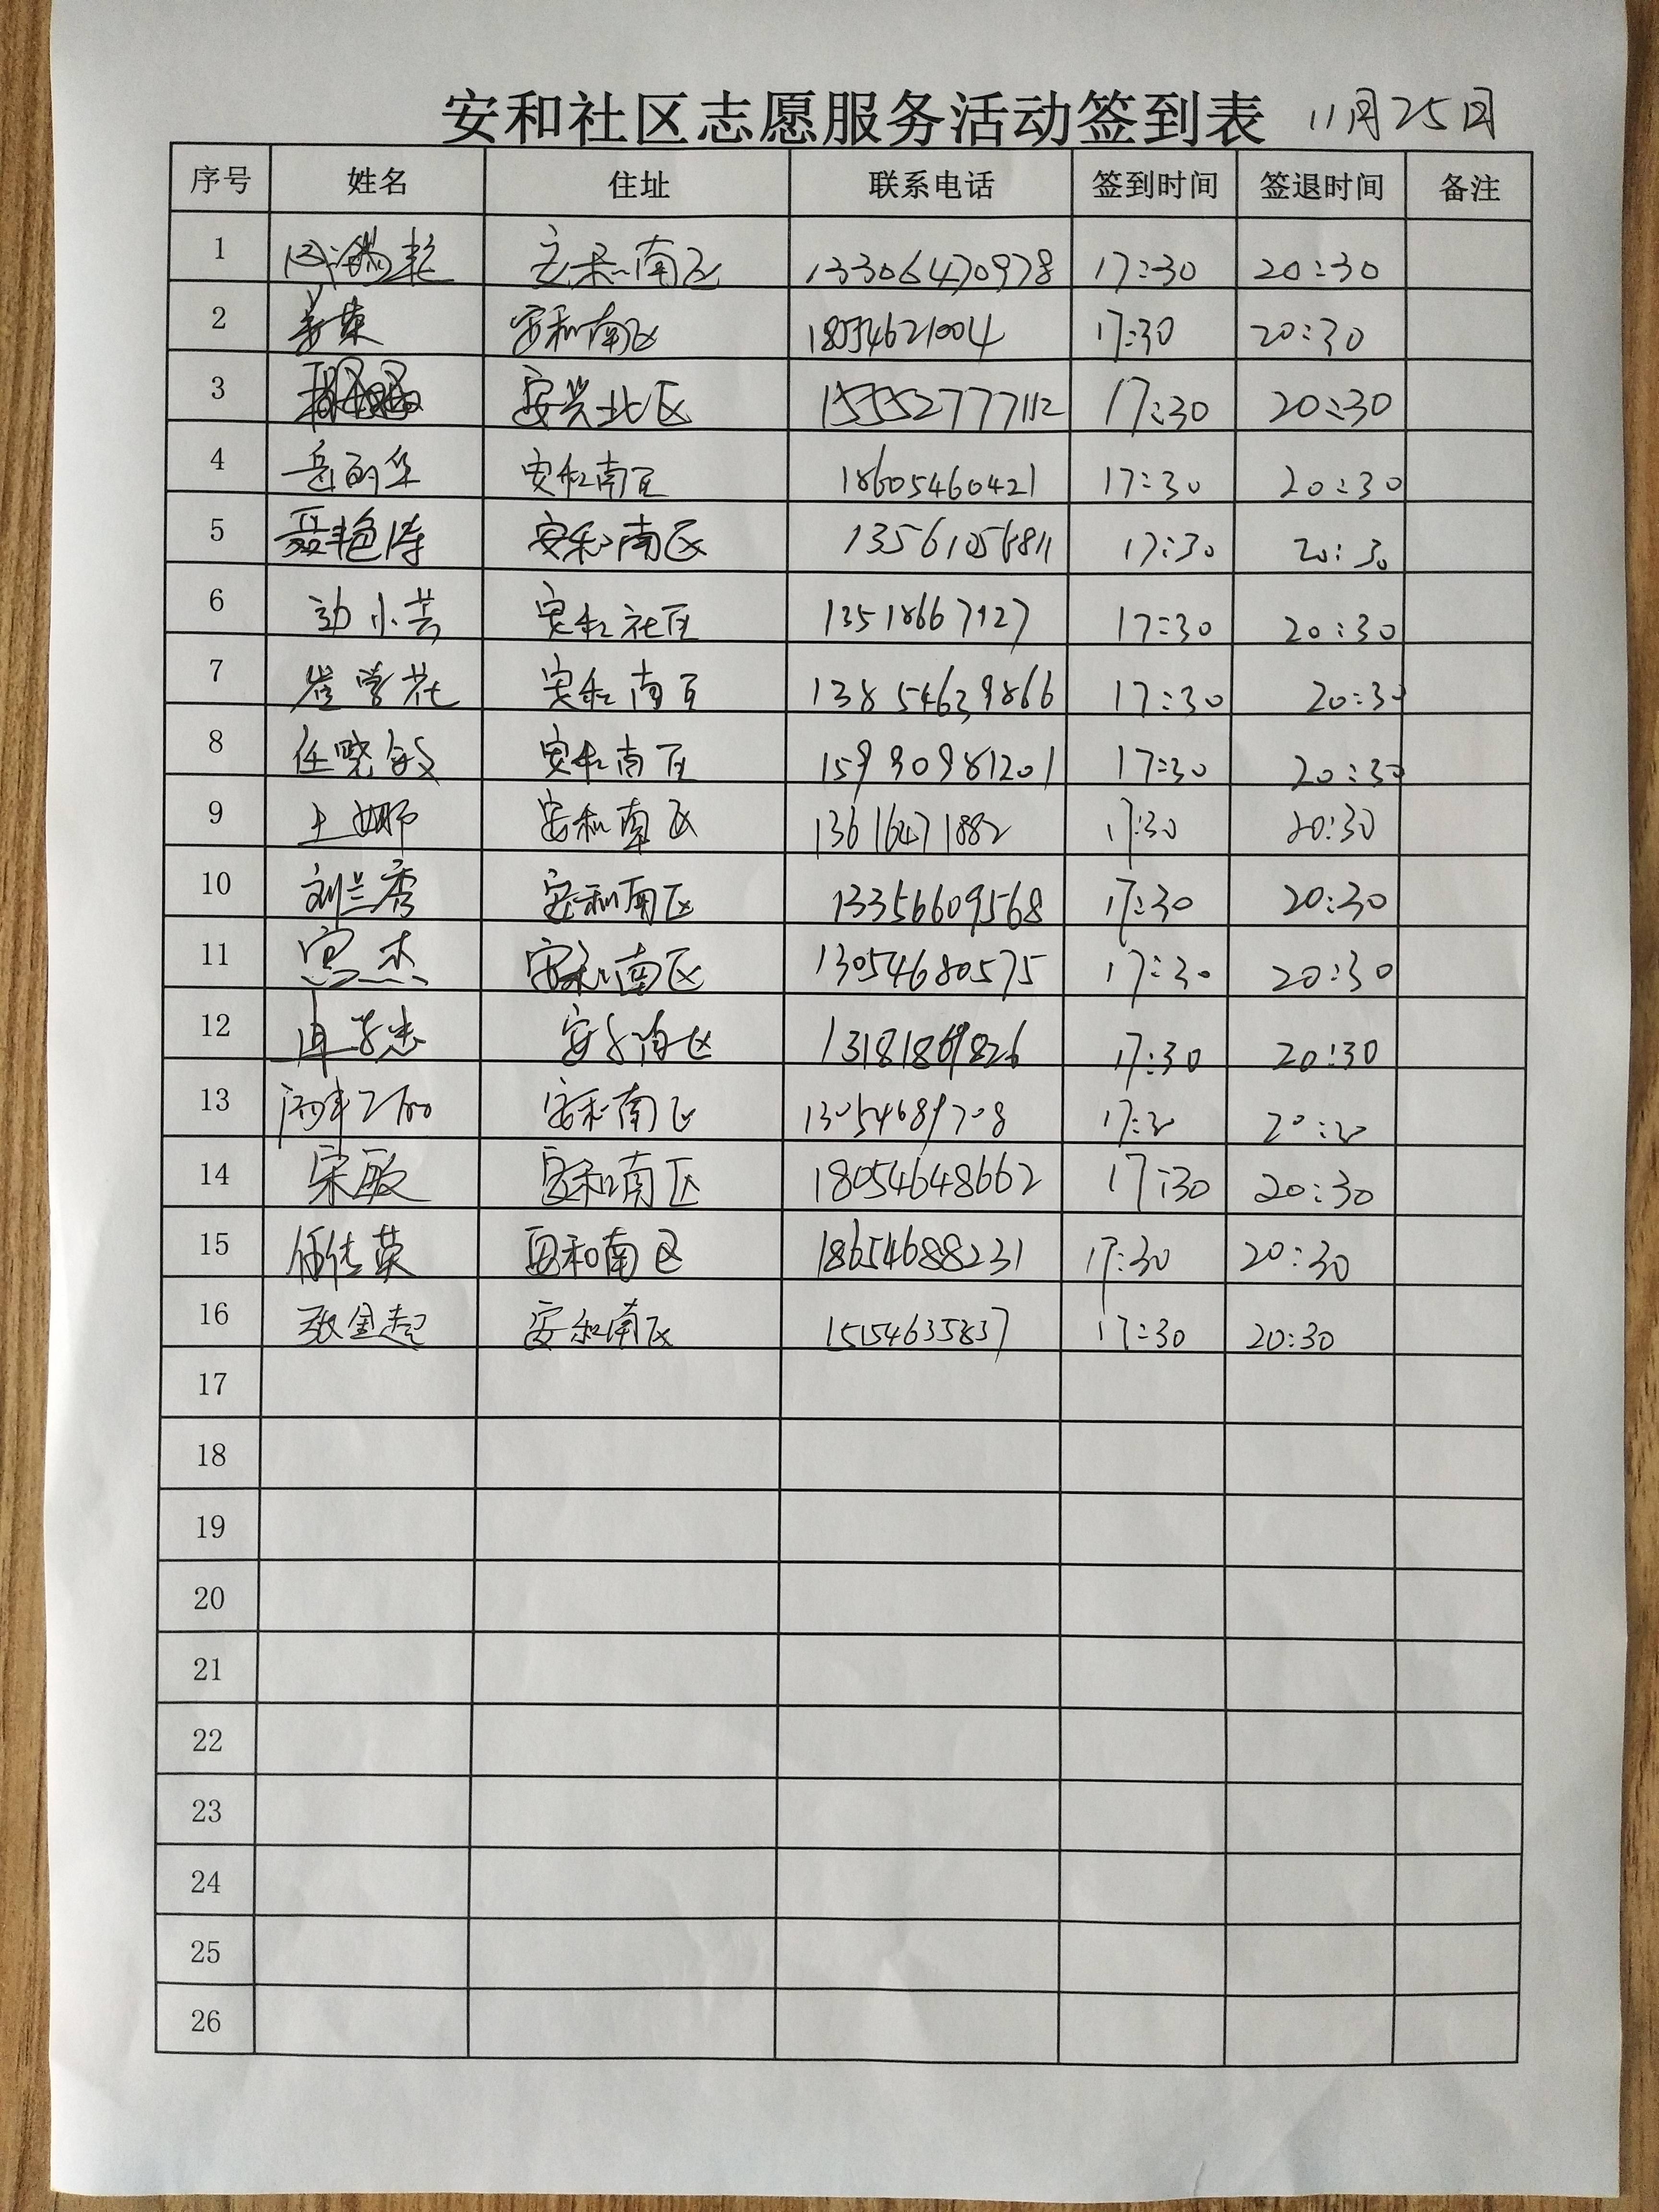 安和社区志愿服务活动签到表 11月25日
序号 姓名 住址 联系电话 签到时间 签退时间 备注
1 安和南区 13306470978 17:30 20:30
2 姜荣 安和南区 18054621004 17:30 20:30
3 安兴北区 15552777112 17:30 20:30
4 岳丽华 安和南区 18605460421 17:30 20:30
5 聂艳涛 安和南区 13561056811 17:30 20:30
6 小芸 安和社区 13518667127 17:30 20:30
7 崔学花 安和南区 13854639866 17:30 20:30
8 任晓敏 安和南区 15990981201 17:30 20:30
9 王娜 安和南区 13616471882 17:30 20:30
10 刘兰秀 安和南区 13356609568 17:30 20:30
11 宫杰 安和南区 13054680575 17:30 20:30
12 安和南区 13181869826 17:30 20:30
13 安和南区 13054689708 17:30 20:30
14 宋敏 安和南区 18054648662 17:30 20:30
15 任佳英 安和南区 18654688231 17:30 20:30
16 张金超 安和南区 15154635837 17:30 20:30
17
18
19
20
21
22
23
24
25
26